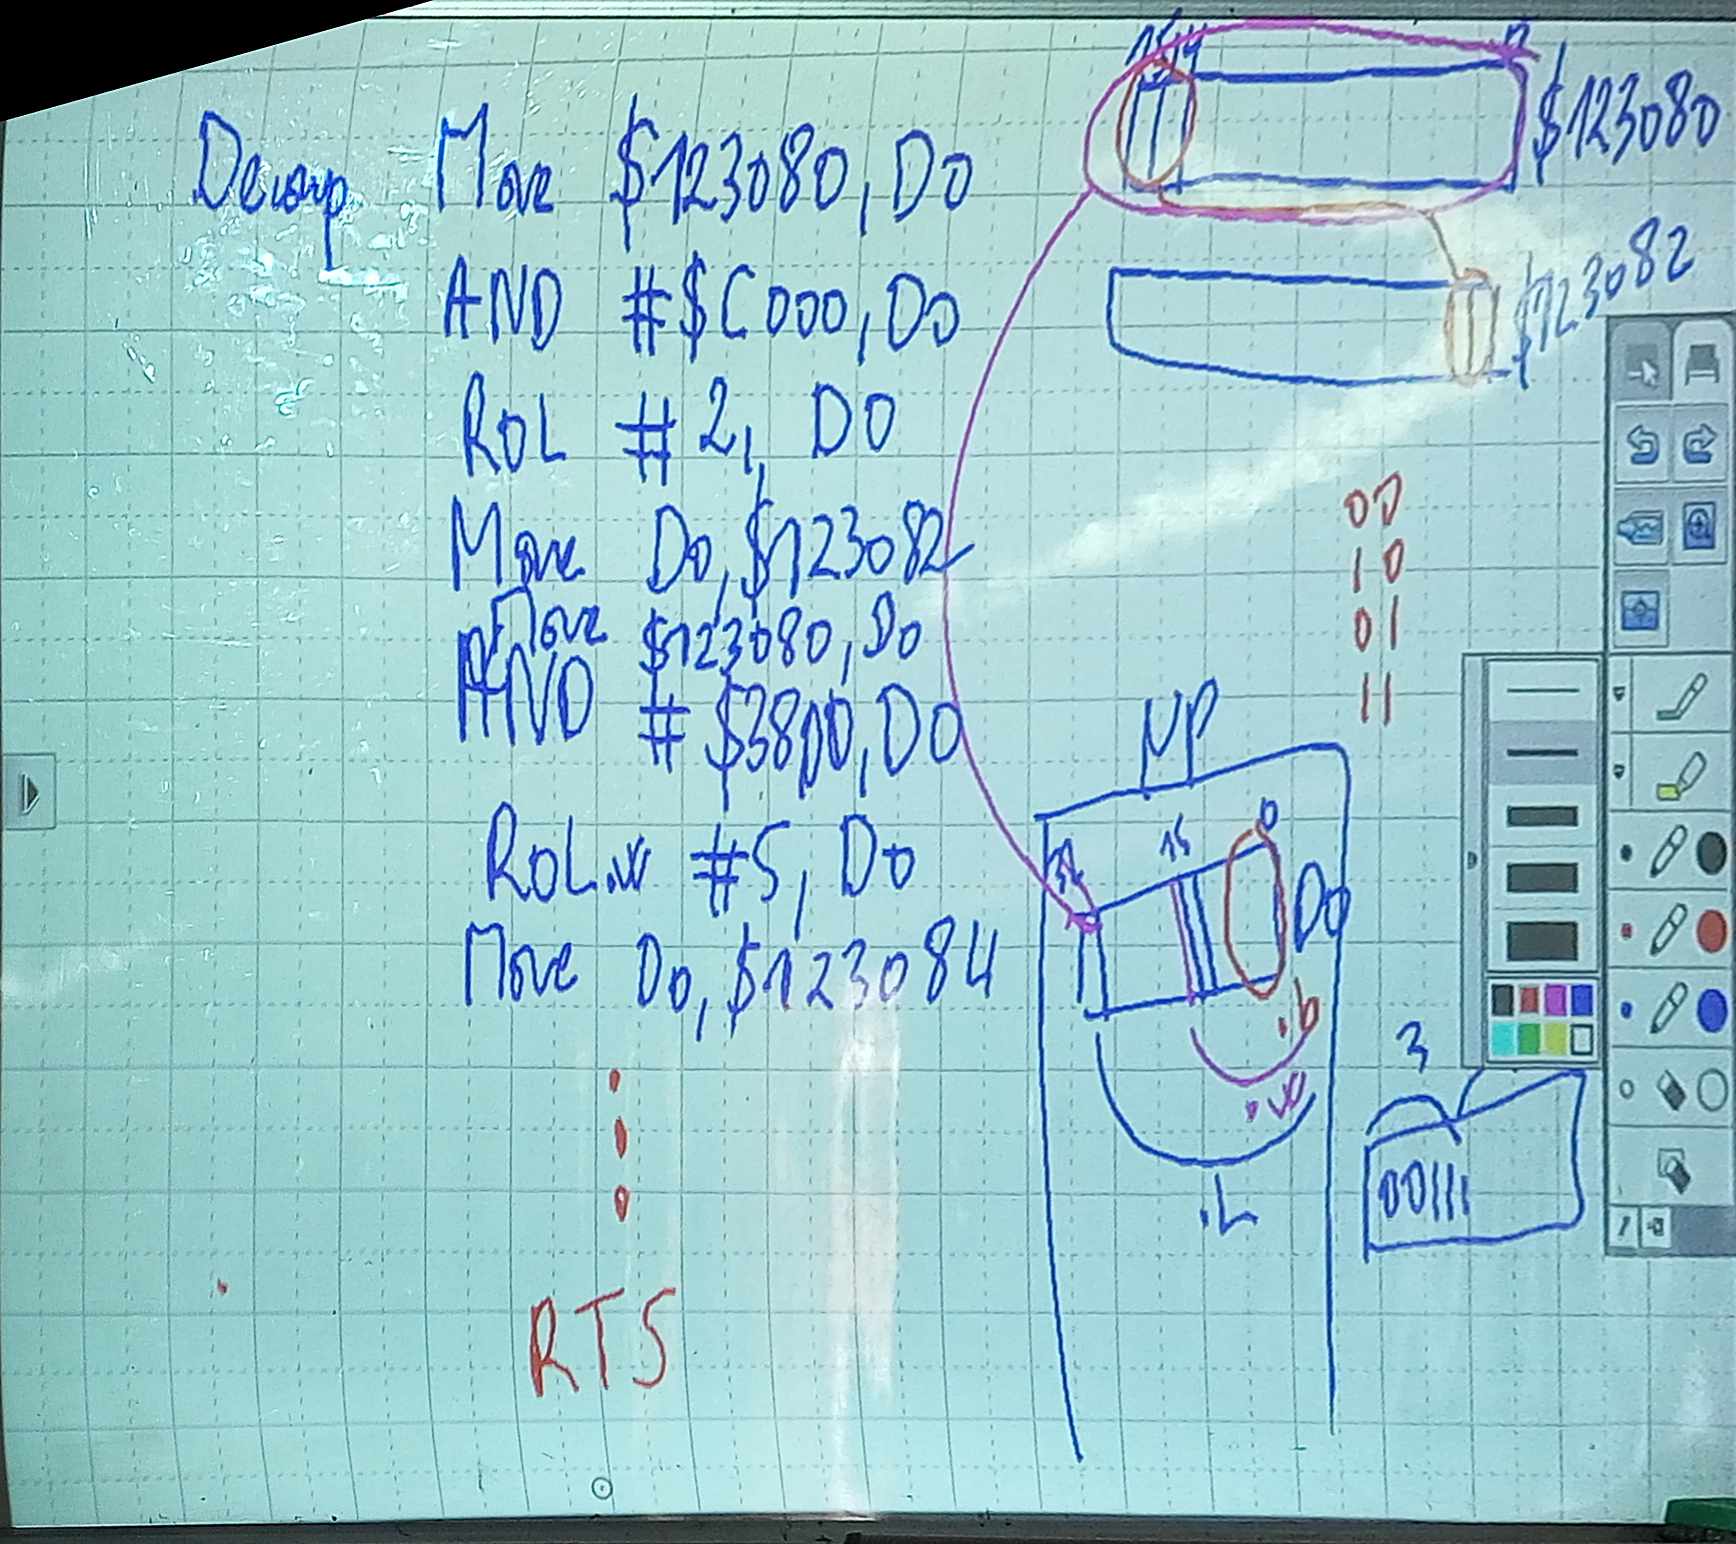 Decomp Move $123080, D0
AND #$C000, D0
ROL #2, D0
Move D0, $123082
Move $123080, D0
AND #$3800, D0
ROL.W #5, D0
Move D0, $123084
RTS
15 14 0
$123080
$123082
00
10
01
11
MP
15 0
D0
.b
.W
.L
3
00111